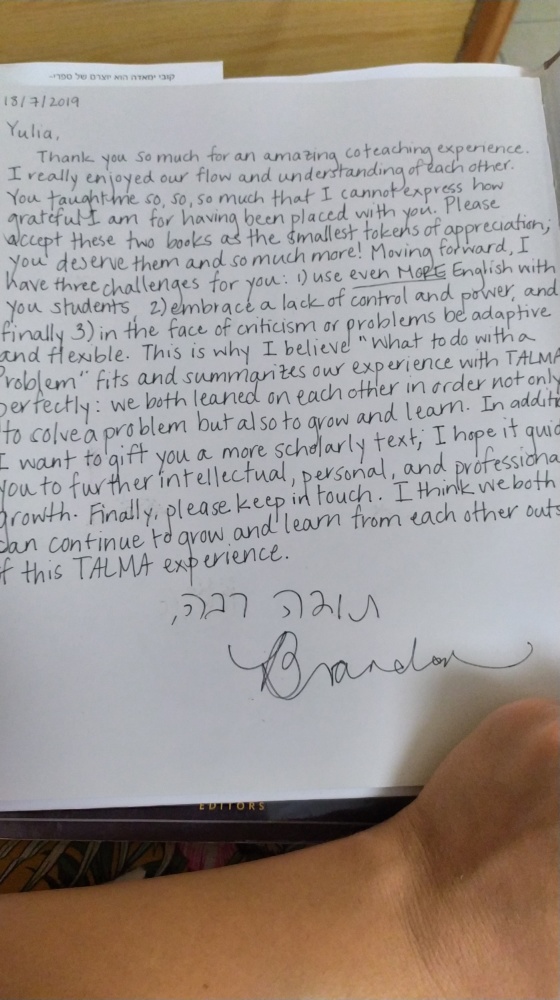 קובי ימאדה הוא יוצרם של ספרי-
18/7/2019
Yulia,
Thank you so much for an amazing coteaching experience.
I really enjoyed our flow and understanding of each other.
You taught me so, so, so much that I cannot express how
grateful I am for having been placed with you. Please
accept these two books as the smallest tokens of appreciation,
you deserve them and so much more! Moving forward, I
have three challenges for you: 1) use even MORE English with
you students, 2) embrace a lack of control and power, and
finally 3) in the face of criticism or problems be adaptive
and flexible. This is why I believe "What to do with a
Problem" fits and summarizes our experience with TALMA
perfectly: we both leaned on each other in order not only
to solve a problem but also to grow and learn. In additi
I want to gift you a more scholarly text; I hope it guid
you to further intellectual, personal, and professiona
growth. Finally, please keep in touch. I think we both
can continue to grow and learn from each other outs
of this TALMA experience.
תודה רבה,
Brandon
EDITORS